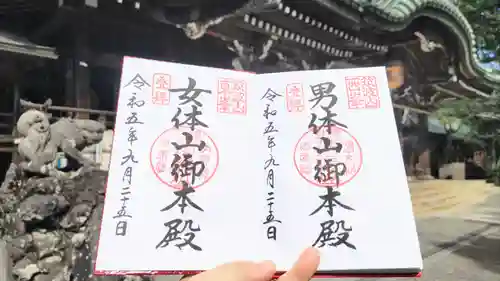 登拝
男体山御本殿
令和五年九月二十五日
登拝
女体山御本殿
令和五年九月二十五日